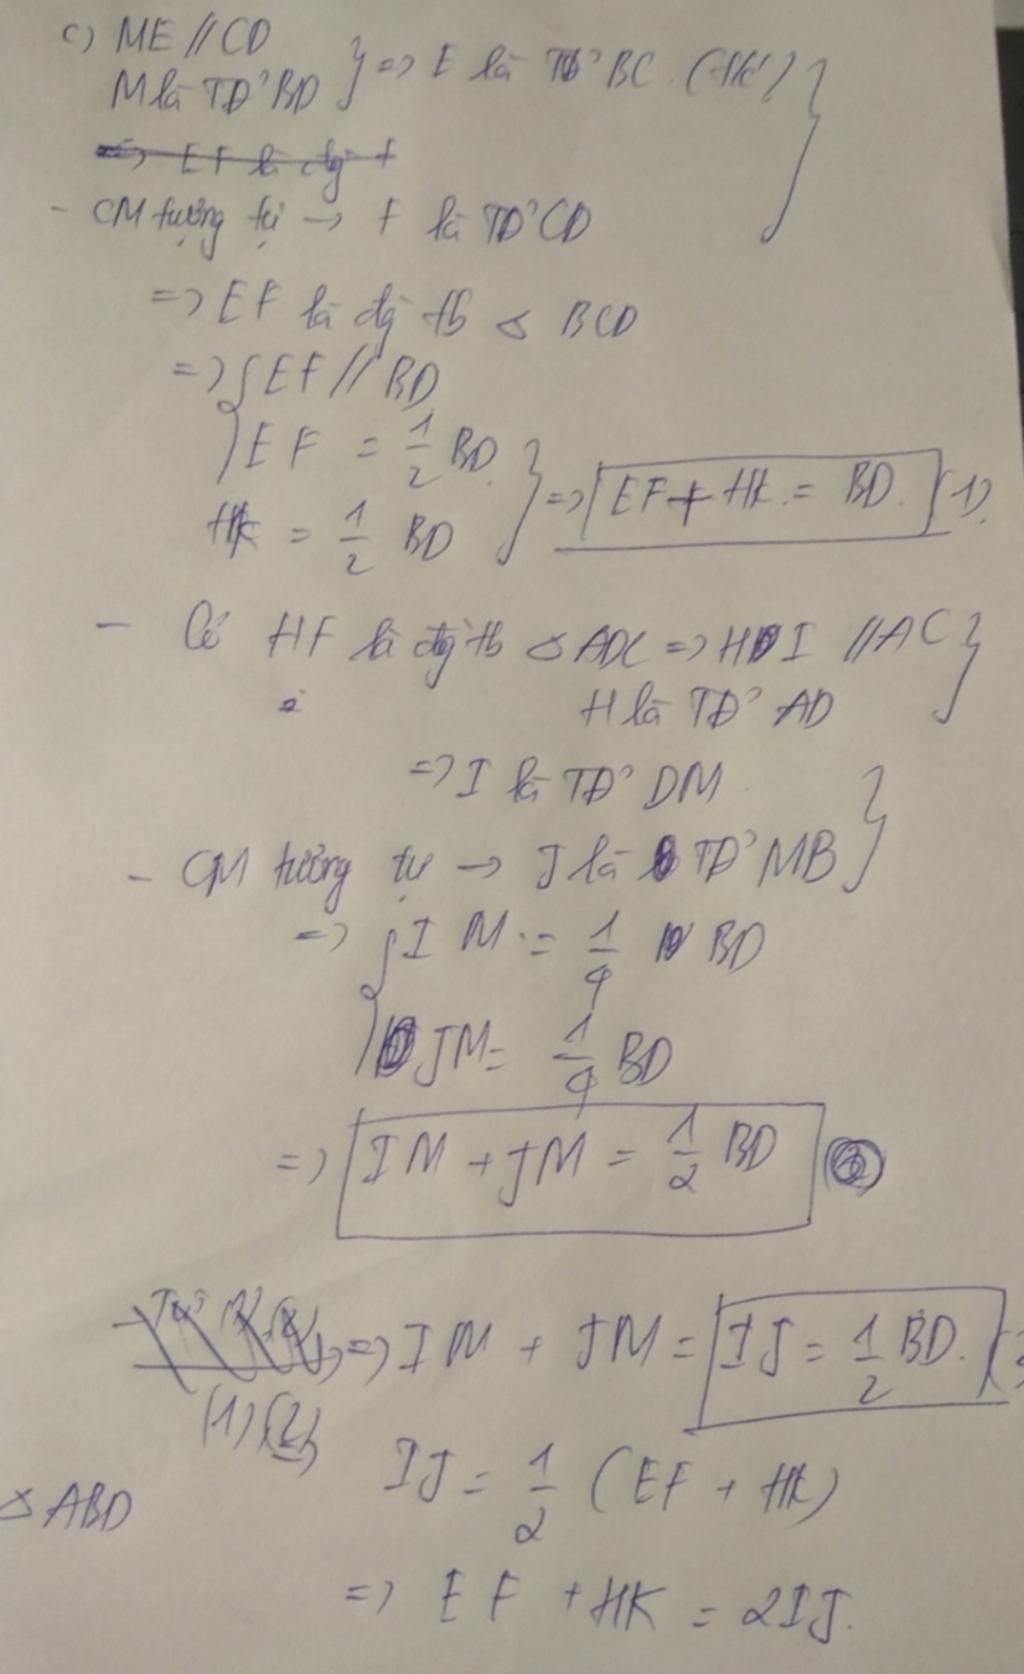 c) ME // CD
M là TĐ' BD } => E là TĐ' BC
- CM tương tự -> F là TĐ' CD
=> EF là đg tb △ BCD
=> { EF // BD
EF = 1/2 BD
HK = 1/2 BD } => EF + HK = BD. (1)
- Có HF là đg tb △ ADC => HI // AC
H là TĐ' AD }
=> I là TĐ' DM
- CM tương tự -> J là TĐ' MB }
=> { IM = 1/4 BD
JM = 1/4 BD
=> IM + JM = 1/2 BD
=> IM + JM = IJ = 1/2 BD.
(1) (2)
IJ = 1/2 (EF + HK)
△ ABD
=> EF + HK = 2IJ.